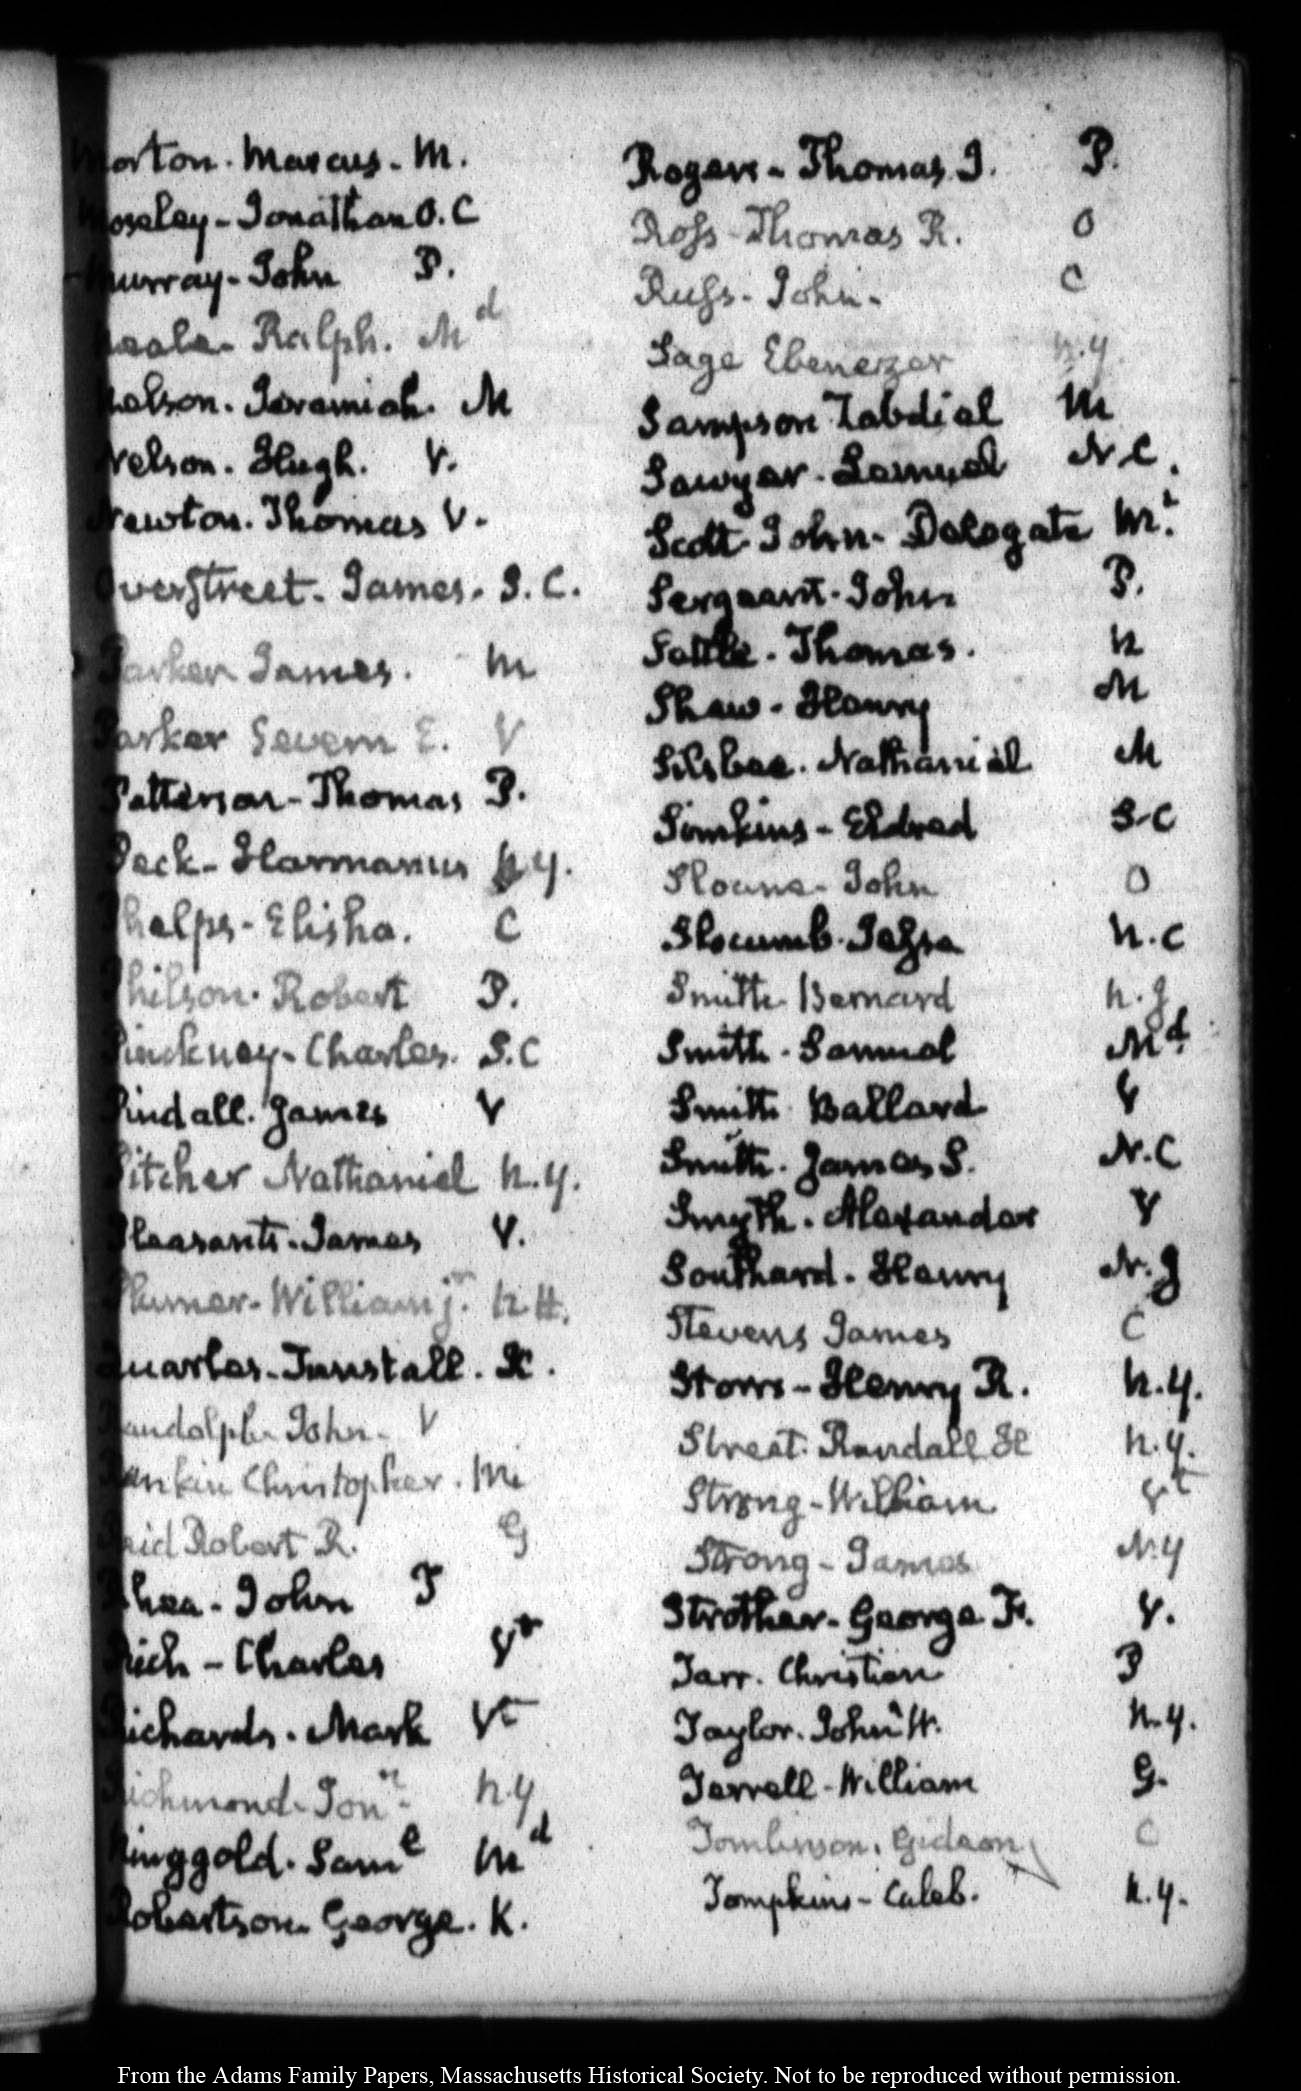 Morton. Marcus. M.
Moseley - Jonathan O. C
Murray. John P.
Neale. Ralph. Md
Nelson. Jeremiah. M
Nelson. Hugh. V.
Newton. Thomas V.
Overstreet. James. S. C.
Parker James. M
Parker Severn E. V
Patterson - Thomas P.
Peck. Harmanus N.Y.
Phelps. Elisha. C
Philson. Robert P.
Pinckney. Charles. S.C
Pindall. James V
Pitcher Nathaniel N.Y.
Pleasants. James V.
Plumer. William jr. N.H.
Quarles. Tunstall. K.
Randolph John. V
Rankin Christopher. Mi
Reid Robert R. G
Rhea. John T
Rich - Charles Vt
Richards. Mark Vt
Richmond. Jonn. N.Y
Ringgold. Saml Md
Robertson. George. K.
Rogers - Thomas J. P.
Ross Thomas R. O
Russ. John. C
Sage Ebenezer N.Y.
Sampson Zabdial M
Sawyer. Lemuel N.C.
Scott John. Delegate Mi.
Sergeant. John P.
Settle. Thomas. N
Shaw. Henry M
Silsbee. Nathaniel M
Simkins - Eldred S-C
Sloane. John O
Slocumb. Jesse N.C
Smith Bernard N.J
Smith. Samuel Md.
Smith Ballard V
Smith. James S. N.C
Smyth. Alexander V
Southard. Henry N.J
Stevens James C
Storrs - Henry R. N.Y.
Street. Randall H N.Y.
Strong - William Vt
Strong - James N.Y
Strother. George F. V.
Tarr. Christian P
Taylor. John W. N.Y.
Terrell - William G.
Tomlinson. Gideon C
Tompkins - Caleb. N.Y.
From the Adams Family Papers, Massachusetts Historical Society. Not to be reproduced without permission.